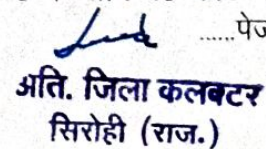 ......पेज
अति. जिला कलक्टर
सिरोही (राज.)